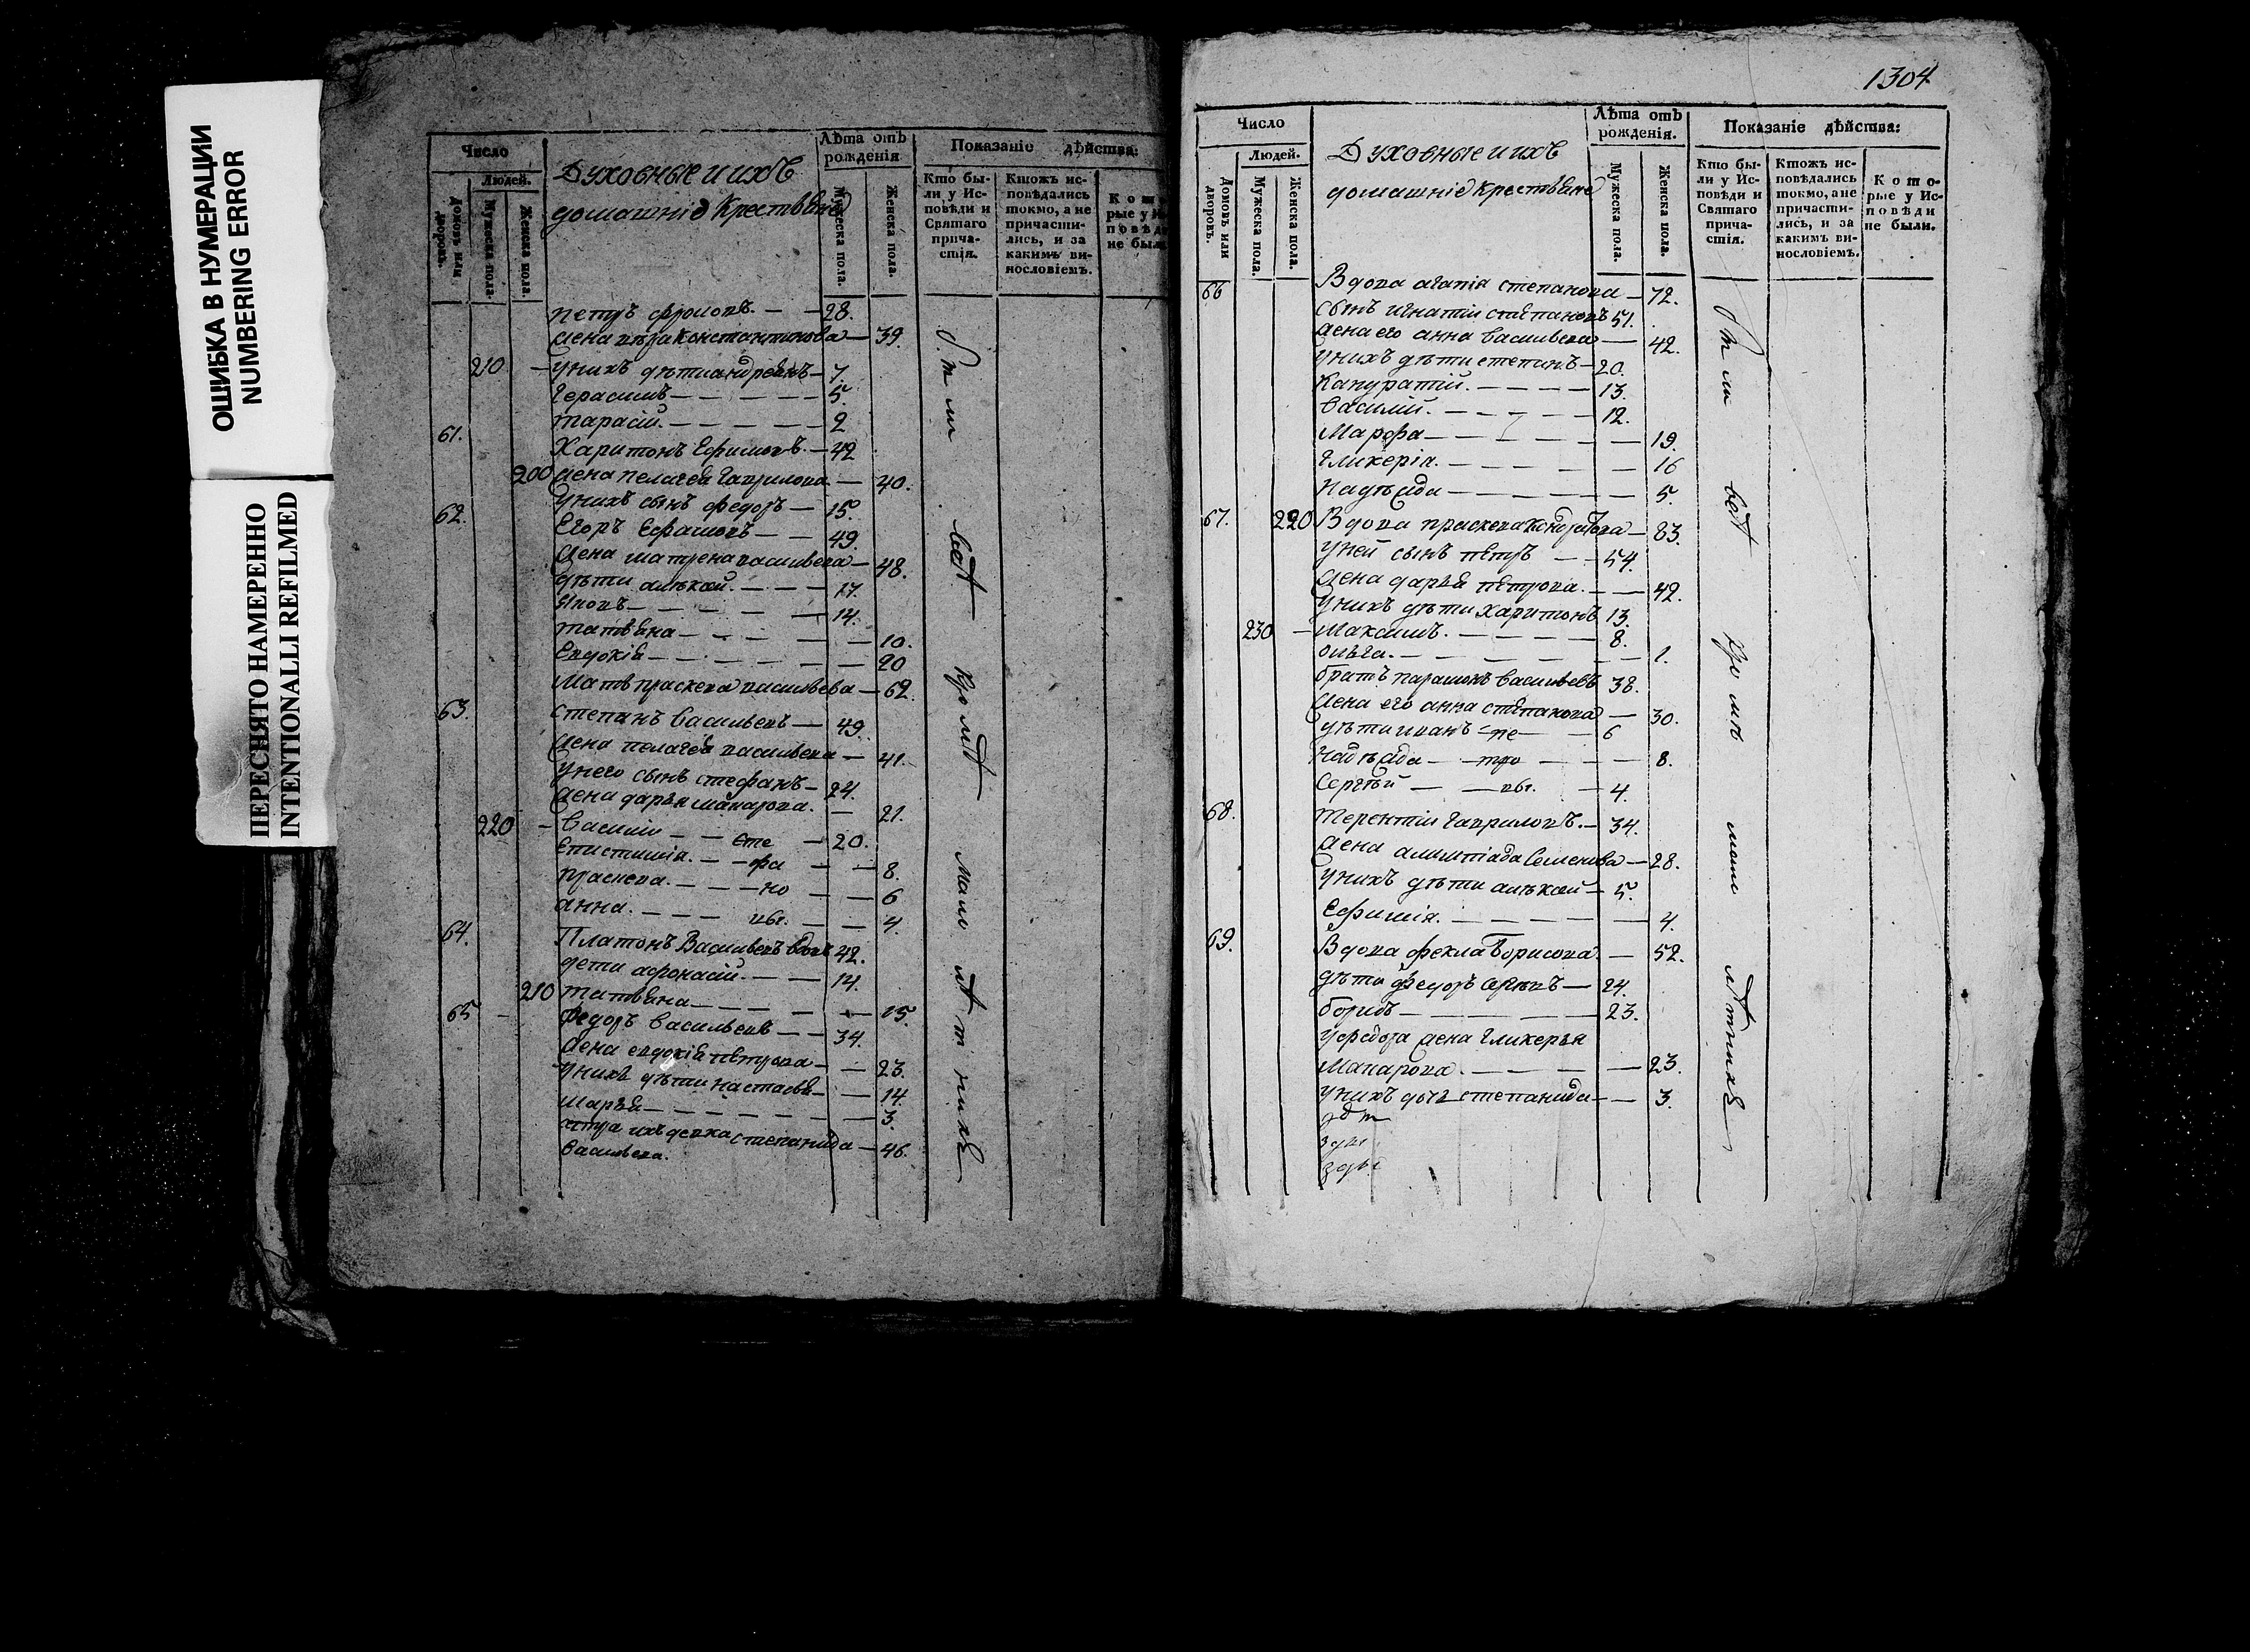 ОШИБКА В НУМЕРАЦИИ
NUMBERING ERROR
ПЕРЕСНЯТО НАМЕРЕННО
INTENTIONALLI REFILMED
Число
Людей.
Домовъ или дворовъ.
Мужеска пола.
Женска пола.
Духовные и ихъ
домашнiе Крестьяне
Лѣта отъ рожденiя
Мужеска пола.
Женска пола.
Показанiе дѣйства:
Кто бы-
ли у Ис-
повѣди и
Святаго
прича-
стiя.
Ктожъ ис-
повѣдались
токмо, а не
причасти-
лись, и за
какимъ ви-
нословiемъ.
Кото
рые у И
повѣд
не был
петръ фроловъ. — 28.
жена вѣра константинова — 39.
210 — у нихъ дѣти андреянъ — 7
Герасимъ — 5.
тарасiй. — 2
61. Харитонъ Ефимовъ. — 42
200 жена пелагея гаврилова — 40.
у нихъ сынъ федоръ — 15.
62. Егоръ Ефимовъ — 49.
жена матрена васильева — 48.
дѣти алѣксѣй. — 17.
Яковъ — 14.
татьяна — 10.
Евдокiя — 20
Мать праскева васильева — 62.
63. степанъ васильевъ — 49.
жена пелагея васильева — 41.
у него сынъ стефанъ — 24.
жена дарья макарова. — 21.
220 — василiй — сте — 20.
Епистимiя. — фа — 8.
праскева. — но — 6
анна. — вы. — 4.
64. Платонъ Васильевъ вдовъ 42.
дети афонасiй. — 14.
210 татьяна — 15.
65 — Федоръ васильевъ — 34.
жена евдокiя пѣтрова — 23.
у нихъ дѣти настасья — 14.
марья — 3.
сестра ихъ девка степанида — 46.
васильева.
всѣ
кромѣ
мало
лѣтнихъ
1304
Число
Людей.
Домовъ или дворовъ.
Мужеска пола.
Женска пола.
Духовные и ихъ
домашнiе Крестьяне
Лѣта отъ рожденiя.
Мужеска пола.
Женска пола.
Показанiе дѣйства:
Кто бы-
ли у Ис-
повѣди и
Святаго
прича-
стiя.
Ктожъ ис-
повѣдались
токмо, а не
причасти-
лись, и за
какимъ ви-
нословiемъ.
Кото-
рые у Ис-
повѣди
не были.
66 Вдова агапiя степанова — 72.
сынъ игнатiй степановъ 51.
жена его анна васильева — 42.
у нихъ дѣти степанъ — 20.
Кандратiй. — 13.
василiй. — 12.
Марфа — 19.
гликерiя. — 16
надѣжда — 5.
67. 220 Вдова праскева кондратова — 83.
у ней сынъ пѣтръ — 54.
жена дарья пѣтрова. — 42.
у нихъ дѣти харитонъ 13.
230 — максимъ. — 8.
ольга. — 1.
братъ парамонъ васильевъ 38.
жена его анна степанова — 30.
дѣти иванъ — пе — 6
надѣжда — тро — 8.
Сергѣй — вы. — 4.
68. терентiй гавриловъ. — 34.
жена алимпiада Семенова — 28.
у нихъ дѣти алѣксѣй — 5.
Ефимiя. — 4.
69. Вдова фекла борисова. — 52.
дѣти федоръ Сергѣевъ — 24.
борисъ — 23.
у федора жена гликерья
макарова. — 23.
у нихъ дочь степанида — 3.
всѣ
кромѣ
мало
лѣтнихъ